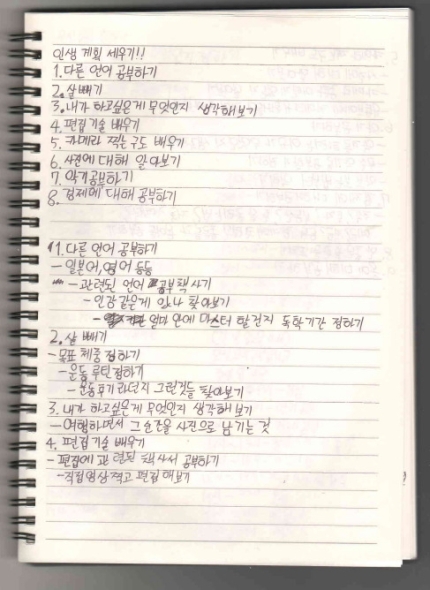 인생 계획 세우기!!
1. 다른 언어 공부하기
2. 살빼기
3. 내가 하고싶은게 무엇인지 생각해보기
4. 편집기술 배우기
5. 카메라 찍는 구도 배우기
6. 사진에 대해 알아보기
7. 악기공부하기
8. 경제에 대해 공부하기
1. 다른 언어 공부하기
- 일본어, 영어 등등
- 관련된 언어 공부책 사기
- 인강같은게 있나 찾아보기
- 얼마 안에 마스터 할건지 독학기간 정하기
2. 살 빼기
- 목표 체중 정하기
- 운동 루틴정하기
- 운동후기라던지 그런것들 찾아보기
3. 내가 하고싶은게 무엇인지 생각해보기
- 여행하면서 그 순간을 사진으로 남기는 것
4. 편집기술 배우기
- 편집에 관련된 책사서 공부하기
- 직접영상찍고 편집해보기